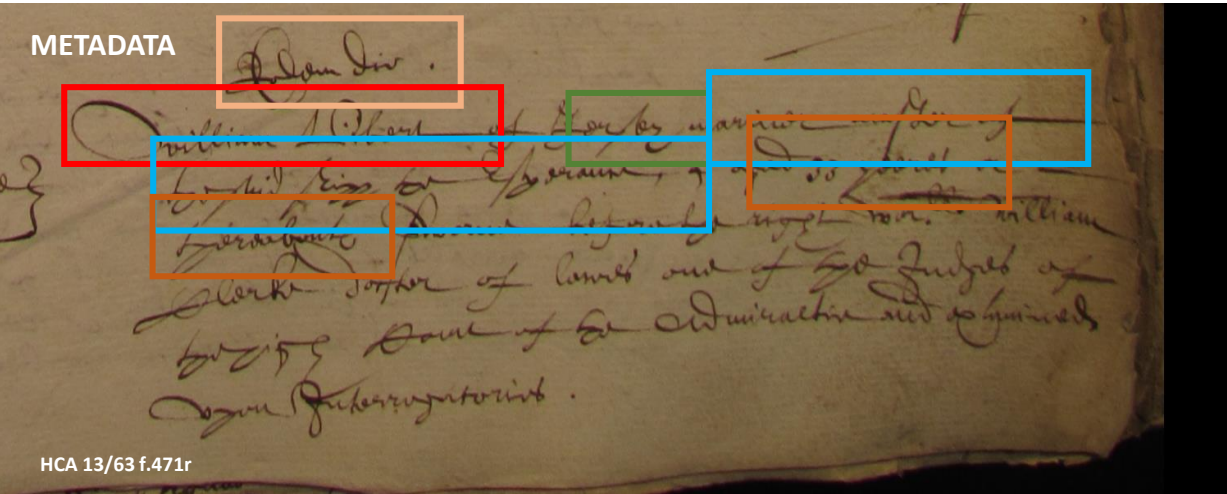 METADATA
Eodem die.
William of Jersey mariner master of
the said shipp the Esperance, aged 33 yeares or
thereabouts sworne before the right wor:ll William
Clerke Doctor of lawes one of the Judges of
the high Court of the Admiraltie and examined
upon Interrogatories.
HCA 13/63 f.471r